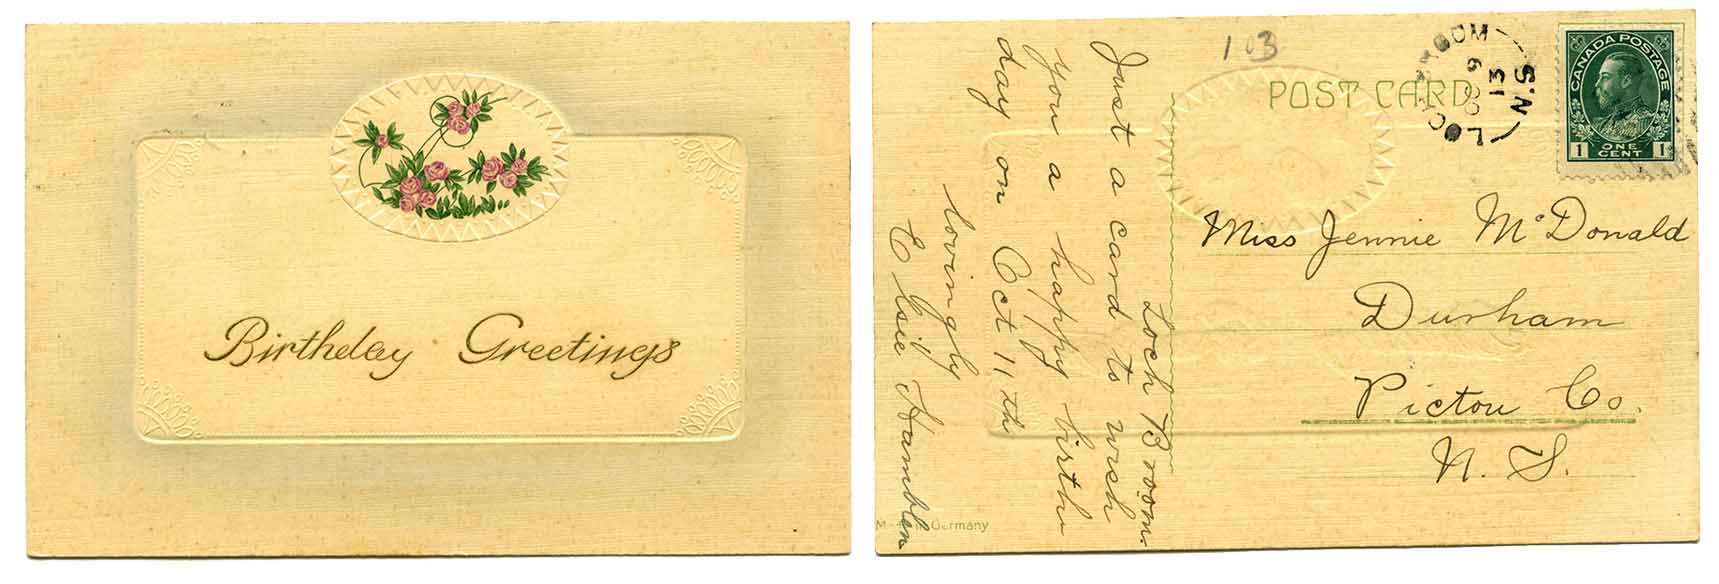 Birthday Greetings
103
POST CARD
N.S.
13
CANADA POSTAGE
1 ONE CENT 1
Loch Broom.
Just a card to wish
you a happy birth
day on Oct 11th
lovingly
Elsie Hamblen
Miss Jennie McDonald
Durham
Pictou Co.
N. S.
Germany